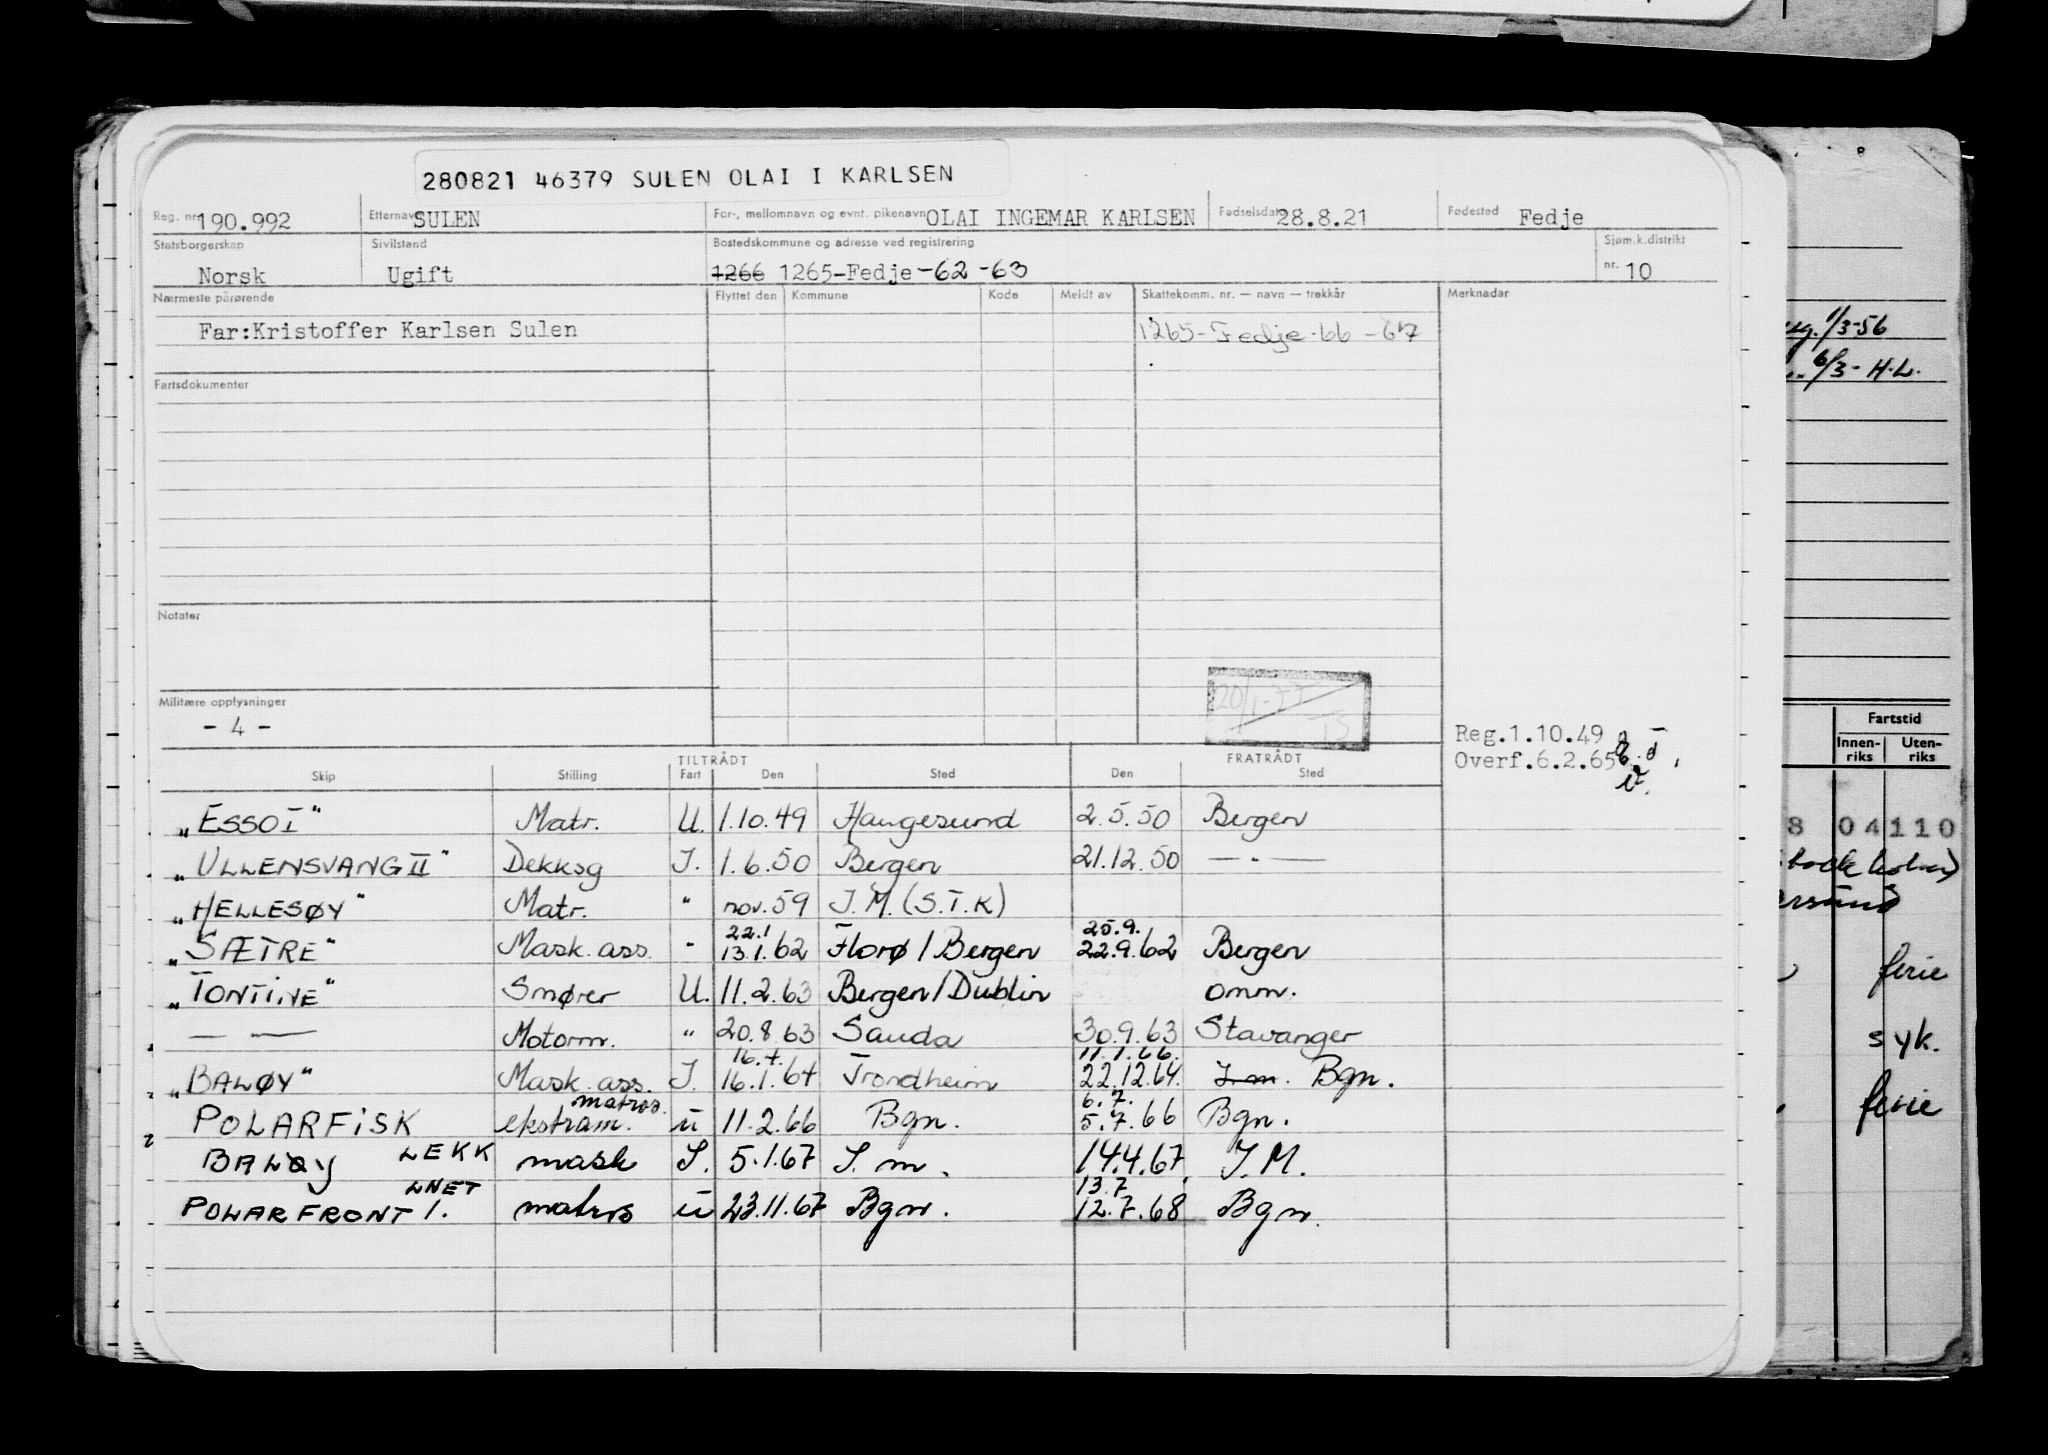 280821 46379 SULEN OLAI I KARLSEN
Reg. nr. 190.992 Etternavn SULEN For-, mellomnavn og evnt. pikenavn OLAI INGEMAR KARLSEN Fødselsdato 28.8.21 Fødested Fedje
Statsborgerskap Sivilstand Bostedskommune og adresse ved registrering Sjøm.k.distrikt
Norsk Ugift 1266 1265-Fedje-62-63 nr. 10
Nærmeste pårørende Flyttet den Kommune Kode Meldt av Skattekomm. nr. — navn — trekkår Merknader
Far:Kristoffer Karlsen Sulen 1265-Fedje-66-67
Fartsdokumenter
Notater
20/1-77
Militære opplysninger
- 4 -
Reg.1.10.49
Overf.6.2.65
TILTRÅDT FRATRÅDT
Skip Stilling Fart Den Sted Den Sted
"ESSO I" Matr. U. 1.10.49 Haugesund 2.5.50 Bergen
"ULLENSVANG II" Dekksg I. 1.6.50 Bergen 21.12.50 — " —
"HELLESØY" Matr. " nov.59 I.M.(S.T.K)
22.1 25.9.
"SÆTRE" Mask.ass. " 13.1.62 Florø/Bergen 22.9.62 Bergen
"TONTINE" Smører U. 11.2.63 Bergen/Dublin omm.
— — Motorm. " 20.8.63 Sauda 30.9.63 Stavanger
16.4. 11.1.66.
"BALØY" Mask.ass. I. 16.1.64 Trondheim 22.12.64. I.m. Bgn.
matros. 6.7.
POLARFISK ekstram. u 11.2.66 Bgn. 5.7.66 Bgn.
BALØY LEKK mask I. 5.1.67 I.m. 14.4.67 I.M.
LNET 13.7
POLARFRONT I. matros u 23.11.67 Bgn. 12.7.68 Bgn.
1/3-56
6/3- H.L.
Fartstid
Innen- Uten-
riks riks
8 04110
ferie
syk.
ferie